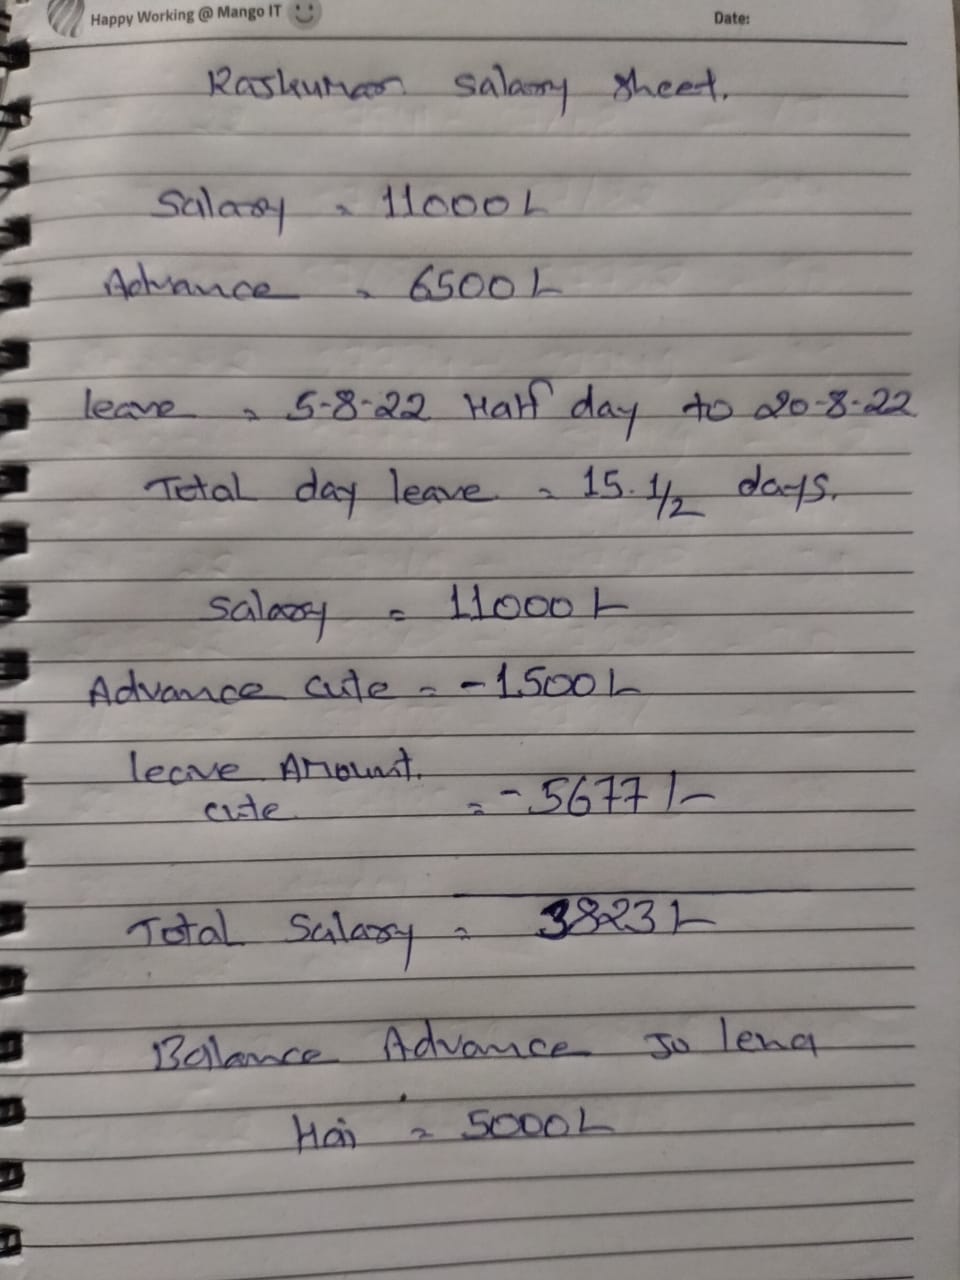 Happy Working @ Mango IT
Date:
Rajkumar Salary Sheet.
Salary = 11000/-
Advance = 6500/-
leave = 5-8-22 Half day to 20-8-22
Total day leave = 15.1/2 days.
Salary = 11000/-
Advance cute = -1500/-
leave Amount.
cute = -5677/-
Total Salary = 3823/-
Balance Advance Jo lena
Hai = 5000/-